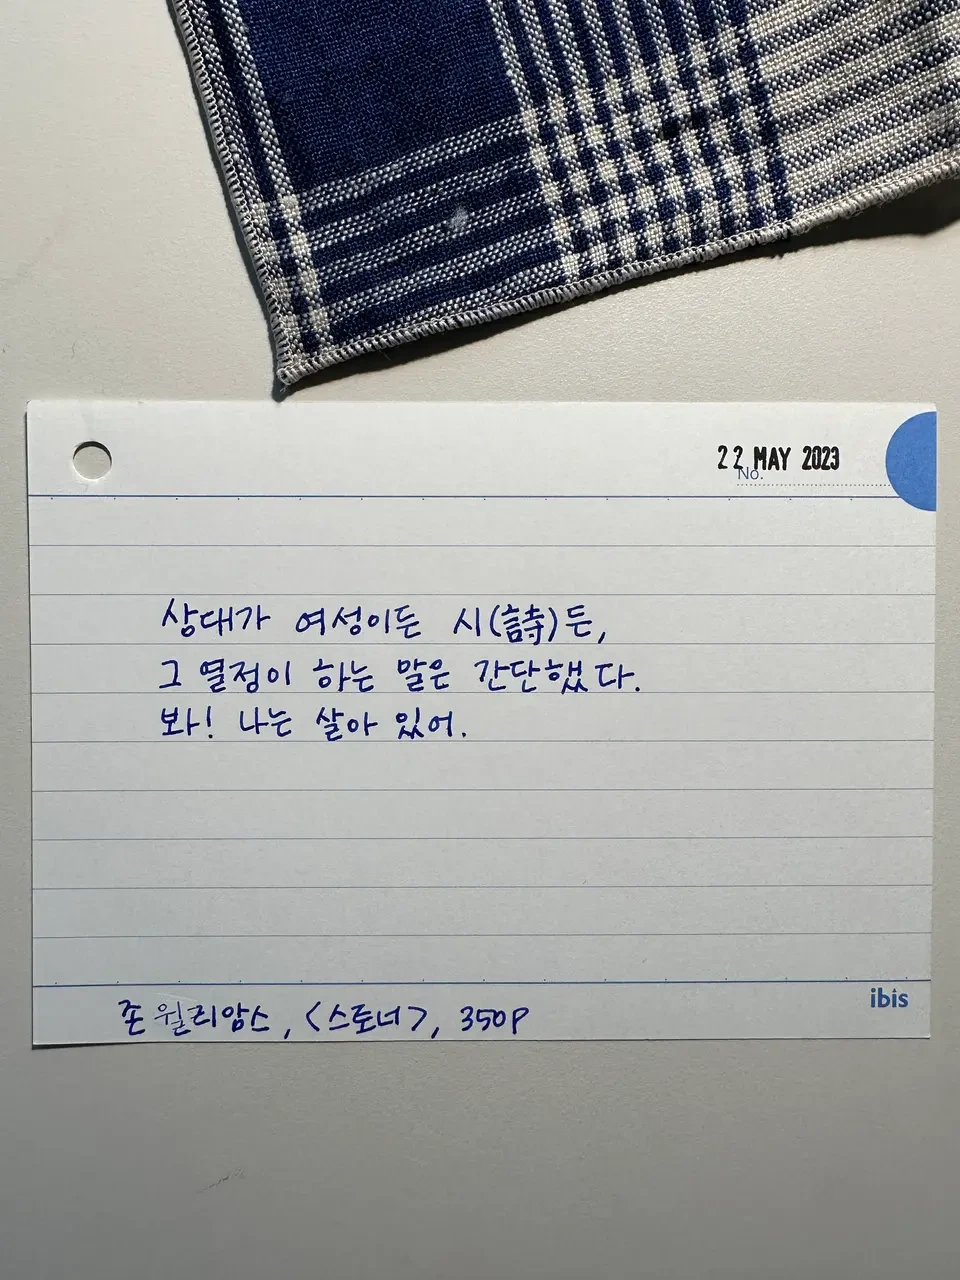 22 MAY 2023
No.
상대가 여성이든 시(詩)든,
그 열정이 하는 말은 간단했다.
봐! 나는 살아 있어.
존 윌리암스, <스토너>, 350p
ibis